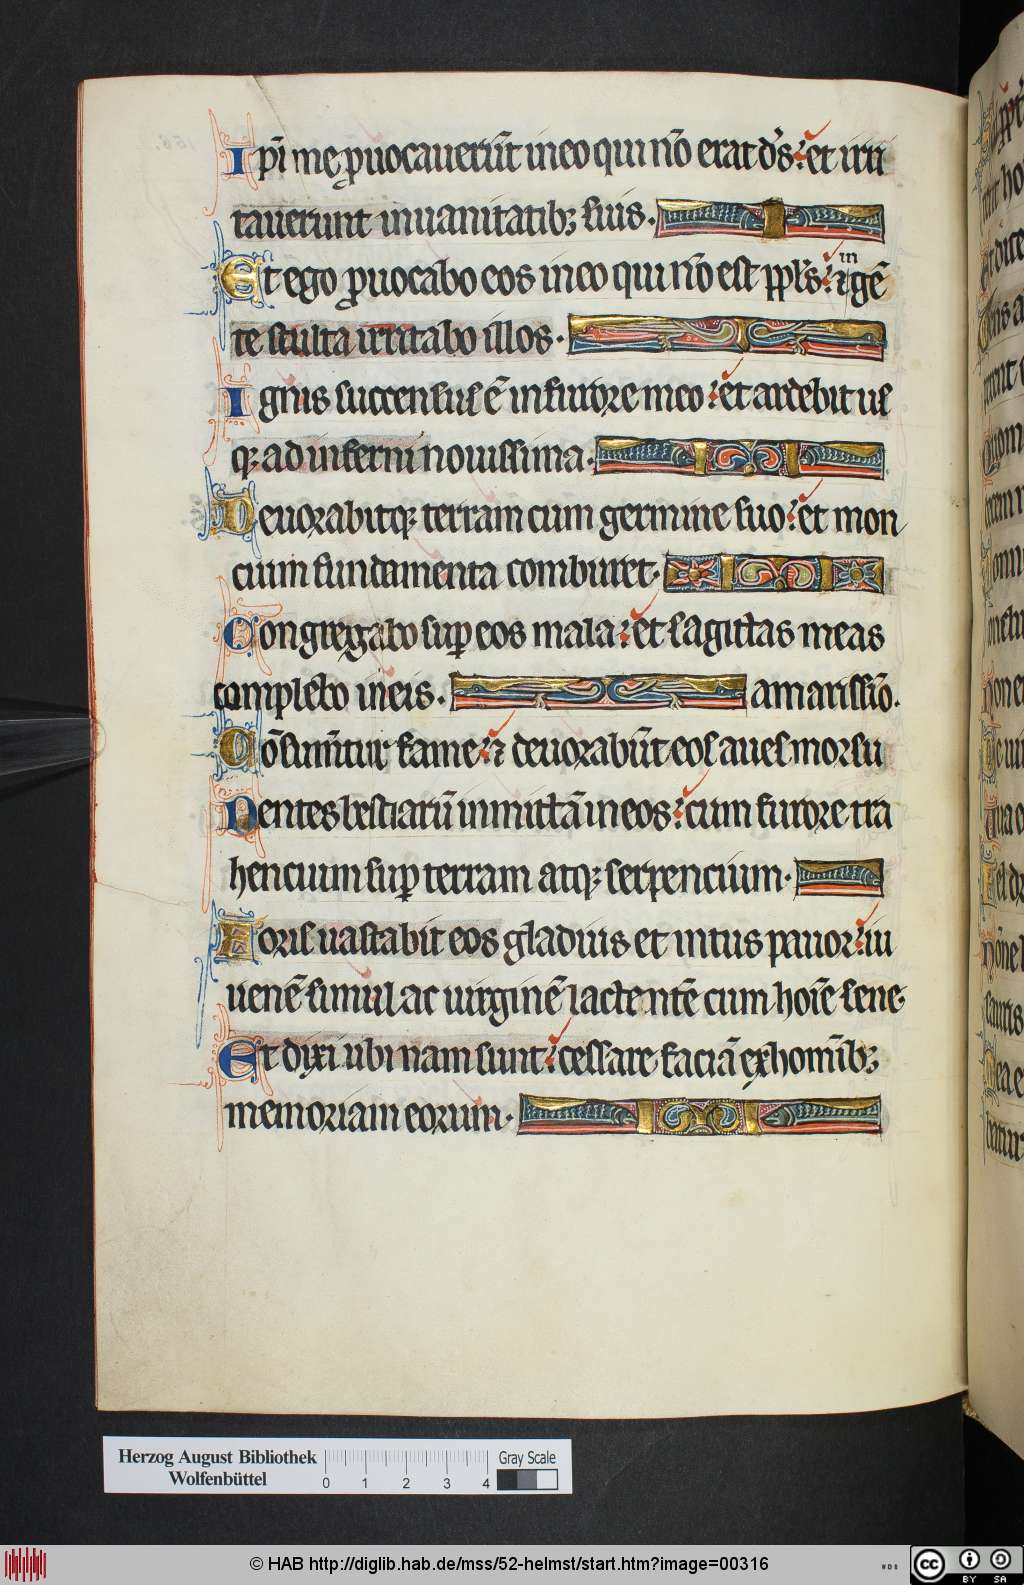 Ipi me ꝓuocauerūt in eo qui nō erat ds̄: et irri
tauerunt in uanitatibꝫ suis.
Et ego ꝓuocabo eos in eo qui nō est ppl̄s: ⁊ in gē
te stulta irritabo illos.
Ignis succensus ē in furore meo: et ardebit us
qꝫ ad inferni nouissima.
Deuorabitqꝫ terram cum germine suo: et mon
cium fundamenta comburet.
Congregabo suꝑ eos mala: et sagittas meas
complebo in eis. amarissīo.
Cōsumēt͛ur fame: ⁊ deuorabūt eos aues morsu
Dentes bestiarū inmittā in eos: cum furore tra
hencium suꝑ terram atqꝫ serpencium.
Foris uastabit eos gladius et intus pauor: iu
uenē simul ac uirginē lactentē cum hoīe sene.
Et dixi ubi nam sunt: cessare faciā ex homībꝫ
memoriam eorum.
Herzog August Bibliothek
Wolfenbüttel
0 1 2 3 4
Gray Scale
© HAB http://diglib.hab.de/mss/52-helmst/start.htm?image=00316
WDB
cc BY SA